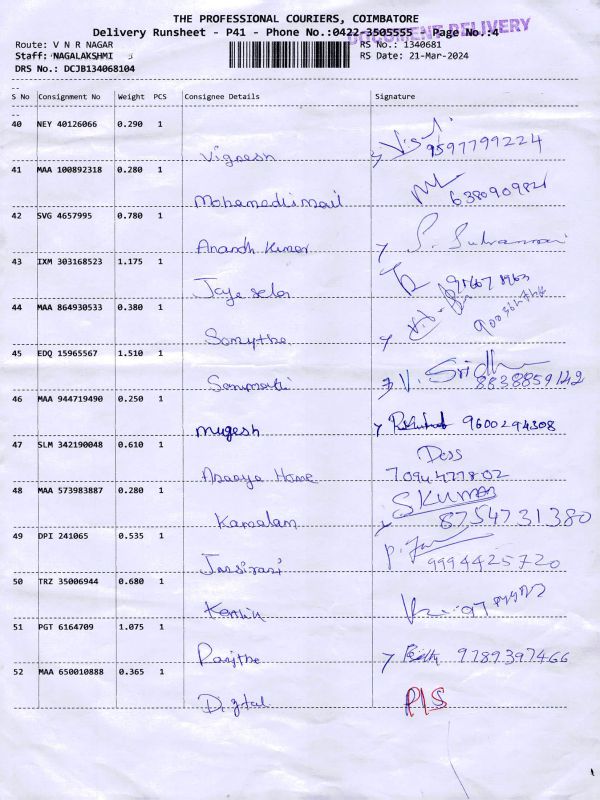 THE PROFESSIONAL COURIERS, COIMBATORE
Delivery Runsheet - P41 - Phone No.:0422-3505555 - Page No.:4
DOCUMENT DELIVERY
Route: V N R NAGAR RS No.: 1340681
Staff: NAGALAKSHMI RS Date: 21-Mar-2024
DRS No.: DCJB134068104
S No Consignment No Weight PCS Consignee Details Signature
40 NEY 40126066 0.290 1
Vignesh 9597799224
41 MAA 100892318 0.280 1
Mohamed ismail
42 SVG 4657995 0.780 1
Anandh Kumar
43 IXM 303168523 1.175 1
Jaya selar
44 MAA 864930533 0.380 1
Samythe
45 EDQ 15965567 1.510 1
V. Sridhar 8838859142
46 MAA 944719490 0.250 1
mugesh 9600294308
47 SLM 342190048 0.610 1
Dass
Home 7094477802
48 MAA 573983887 0.280 1
SKumar
Kamalam 8754731380
49 DPI 241065 0.535 1
9994425720
50 TRZ 35006944 0.680 1
51 PGT 6164709 1.075 1
Ranjithe 9789397466
52 MAA 650010888 0.365 1
Digital P/S